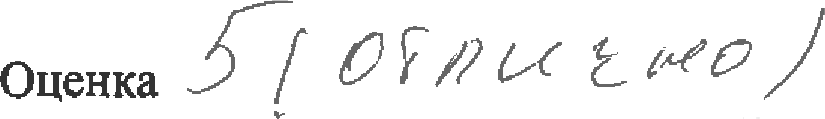 Оценка 5 (отлично)